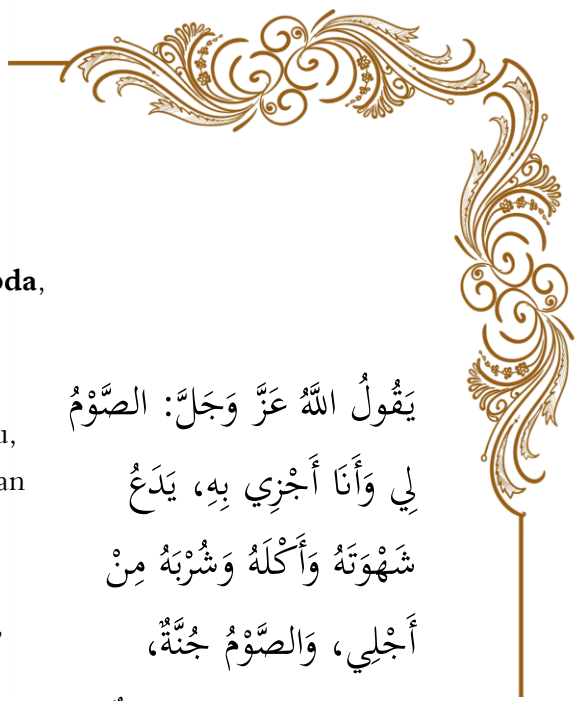 oda,
يَقُولُ اللَّهُ عَزَّ وَجَلَّ: الصَّوْمُ
u,
لِي وَأَنَا أَجْزِي بِهِ، يَدَعُ
an
شَهْوَتَهُ وَأَكْلَهُ وَشُرْبَهُ مِنْ
أَجْلِي، وَالصَّوْمُ جُنَّةٌ،